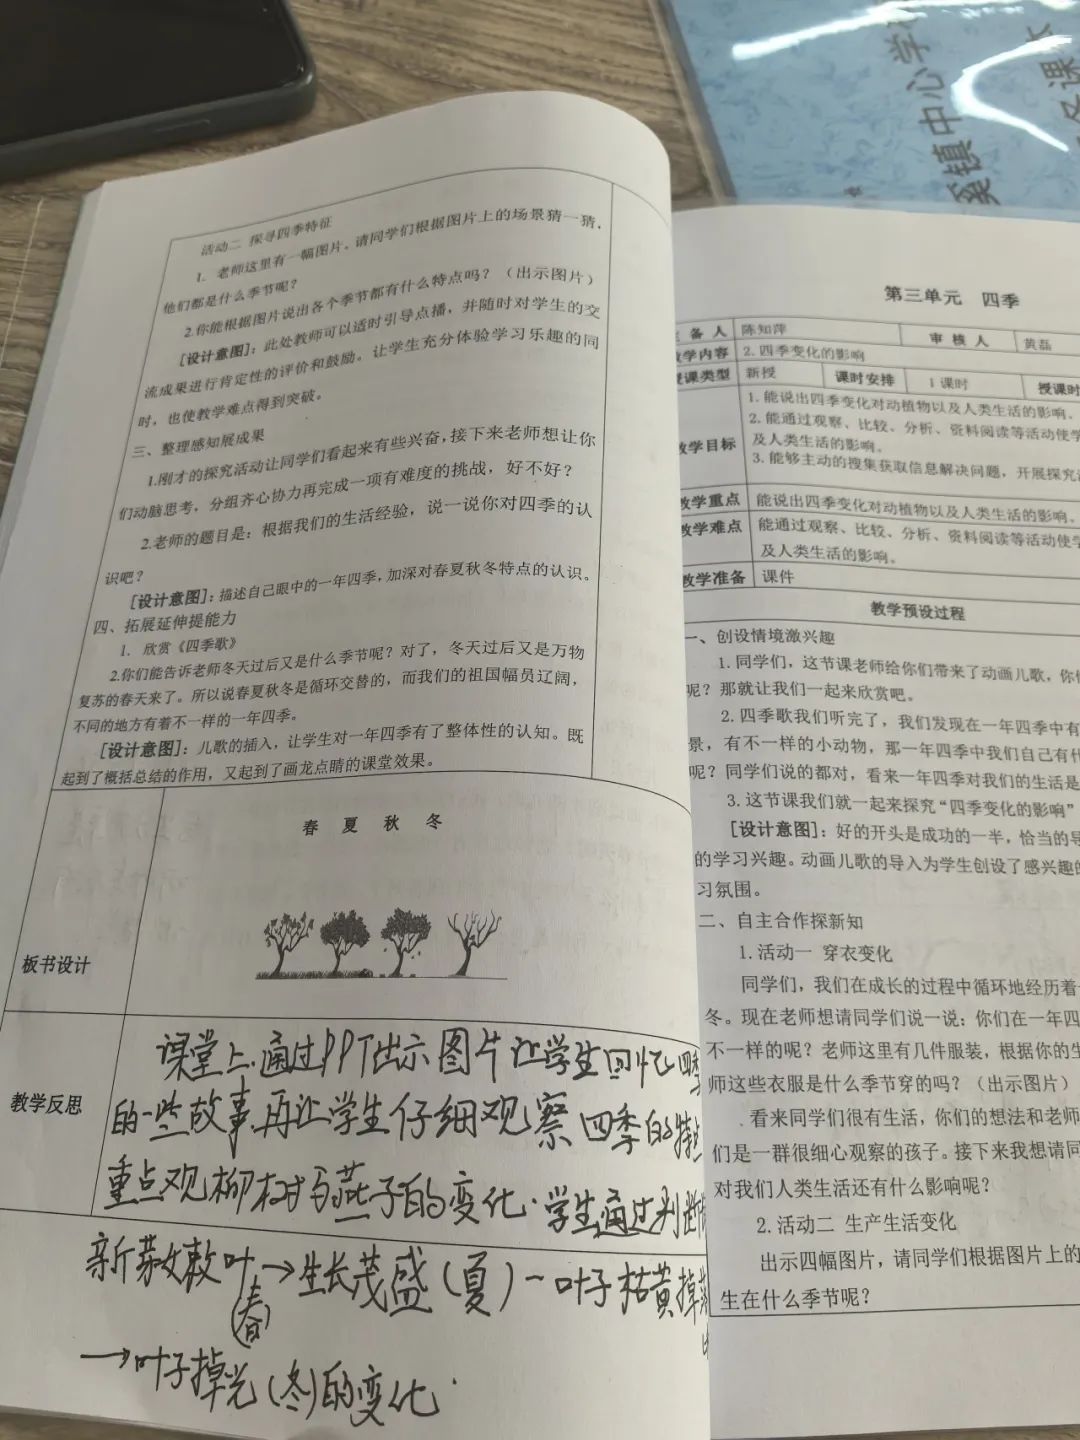 活动二 探寻四季特征
1. 老师这里有一幅图片。请同学们根据图片上的场景猜一猜.
他们都是什么季节呢？
2.你能根据图片说出各个季节都有什么特点吗？（出示图片）
[设计意图]：此处教师可以适时引导点播，并随时对学生的交
流成果进行肯定性的评价和鼓励。让学生充分体验学习乐趣的同
时，也使教学难点得到突破。
三、整理感知展成果
1.刚才的探究活动让同学们看起来有些兴奋,接下来老师想让你
们动脑思考，分组齐心协力再完成一项有难度的挑战，好不好？
2.老师的题目是：根据我们的生活经验，说一说你对四季的认
识吧？
[设计意图]：描述自己眼中的一年四季,加深对春夏秋冬特点的认识。
四、拓展延伸提能力
1. 欣赏《四季歌》
2.你们能告诉老师冬天过后又是什么季节呢？对了，冬天过后又是万物
复苏的春天来了。所以说春夏秋冬是循环交替的，而我们的祖国幅员辽阔，
不同的地方有着不一样的一年四季。
[设计意图]：儿歌的插入，让学生对一年四季有了整体性的认知。既
起到了概括总结的作用，又起到了画龙点睛的课堂效果。
春 夏 秋 冬
板书设计
教学反思
课堂上,通过PPT出示图片让学生回忆四季
的一些故事,再让学生仔细观察四季的特点
重点观柳树与燕子的变化.学生通过判断
新芽嫩叶→生长茂盛(夏)-叶子枯黄掉落
(春)
→叶子掉光(冬)的变化.
镇中心学
备课
第三单元 四季
备 人 陈知萍 审 核 人 黄磊
教学内容 2.四季变化的影响
授课类型 新授 课时安排 1课时 授课时
教学目标
1.能说出四季变化对动植物以及人类生活的影响。
2.能通过观察、比较、分析、资料阅读等活动使学
及人类生活的影响。
3.能够主动的搜集获取信息解决问题，开展探究
教学重点 能说出四季变化对动植物以及人类生活的影响。
教学难点 能通过观察、比较、分析、资料阅读等活动使学
及人类生活的影响。
教学准备 课件
教学预设过程
一、创设情境激兴趣
1.同学们，这节课老师给你们带来了动画儿歌，你
呢？那就让我们一起来欣赏吧。
2.四季歌我们听完了，我们发现在一年四季中有
景，有不一样的小动物，那一年四季中我们自己有什
呢？同学们说的都对，看来一年四季对我们的生活是
3.这节课我们就一起来探究“四季变化的影响”
[设计意图]：好的开头是成功的一半，恰当的导
的学习兴趣。动画儿歌的导入为学生创设了感兴趣的
习氛围。
二、自主合作探新知
1.活动一 穿衣变化
同学们，我们在成长的过程中循环地经历着
冬。现在老师想请同学们说一说：你们在一年四
不一样的呢？老师这里有几件服装，根据你的生
师这些衣服是什么季节穿的吗？（出示图片）
看来同学们很有生活，你们的想法和老师
们是一群很细心观察的孩子。接下来我想请同
对我们人类生活还有什么影响呢？
2.活动二 生产生活变化
出示四幅图片，请同学们根据图片上的
生在什么季节呢？